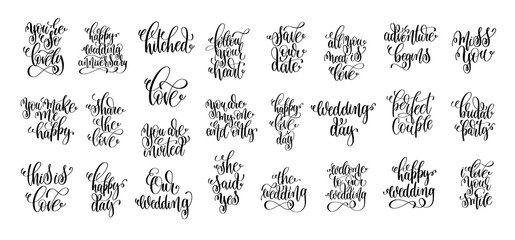 you're
so
lovely
happy
wedding
anniversary
hitched
follow
your
heart
save
our
date
all you
need is
love
adventure
begins
miss
you
you make
me
happy
share
the
love
love
you are
invited
you are
my one
and only
happy
love
day
wedding
day
perfect
couple
bridal
party
this is
love
happy
day
our
wedding
she
said
yes
the
wedding
welcome
to our
wedding
happy
wedding
love
your
smile